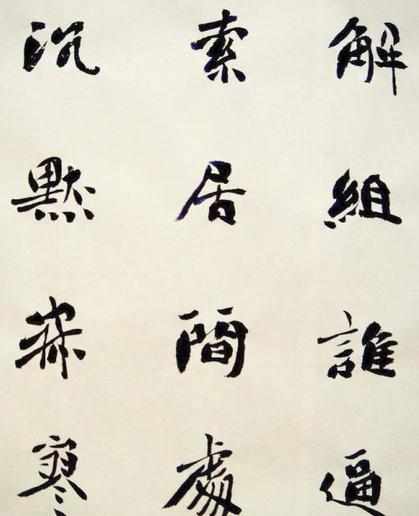 解組誰逼
索居間處
沉默寂寥